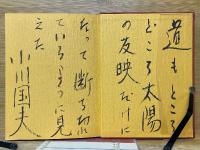 道もところ
どころ太陽
の反映だけに
なって断ち切れ
ているように見
えた
小川国夫